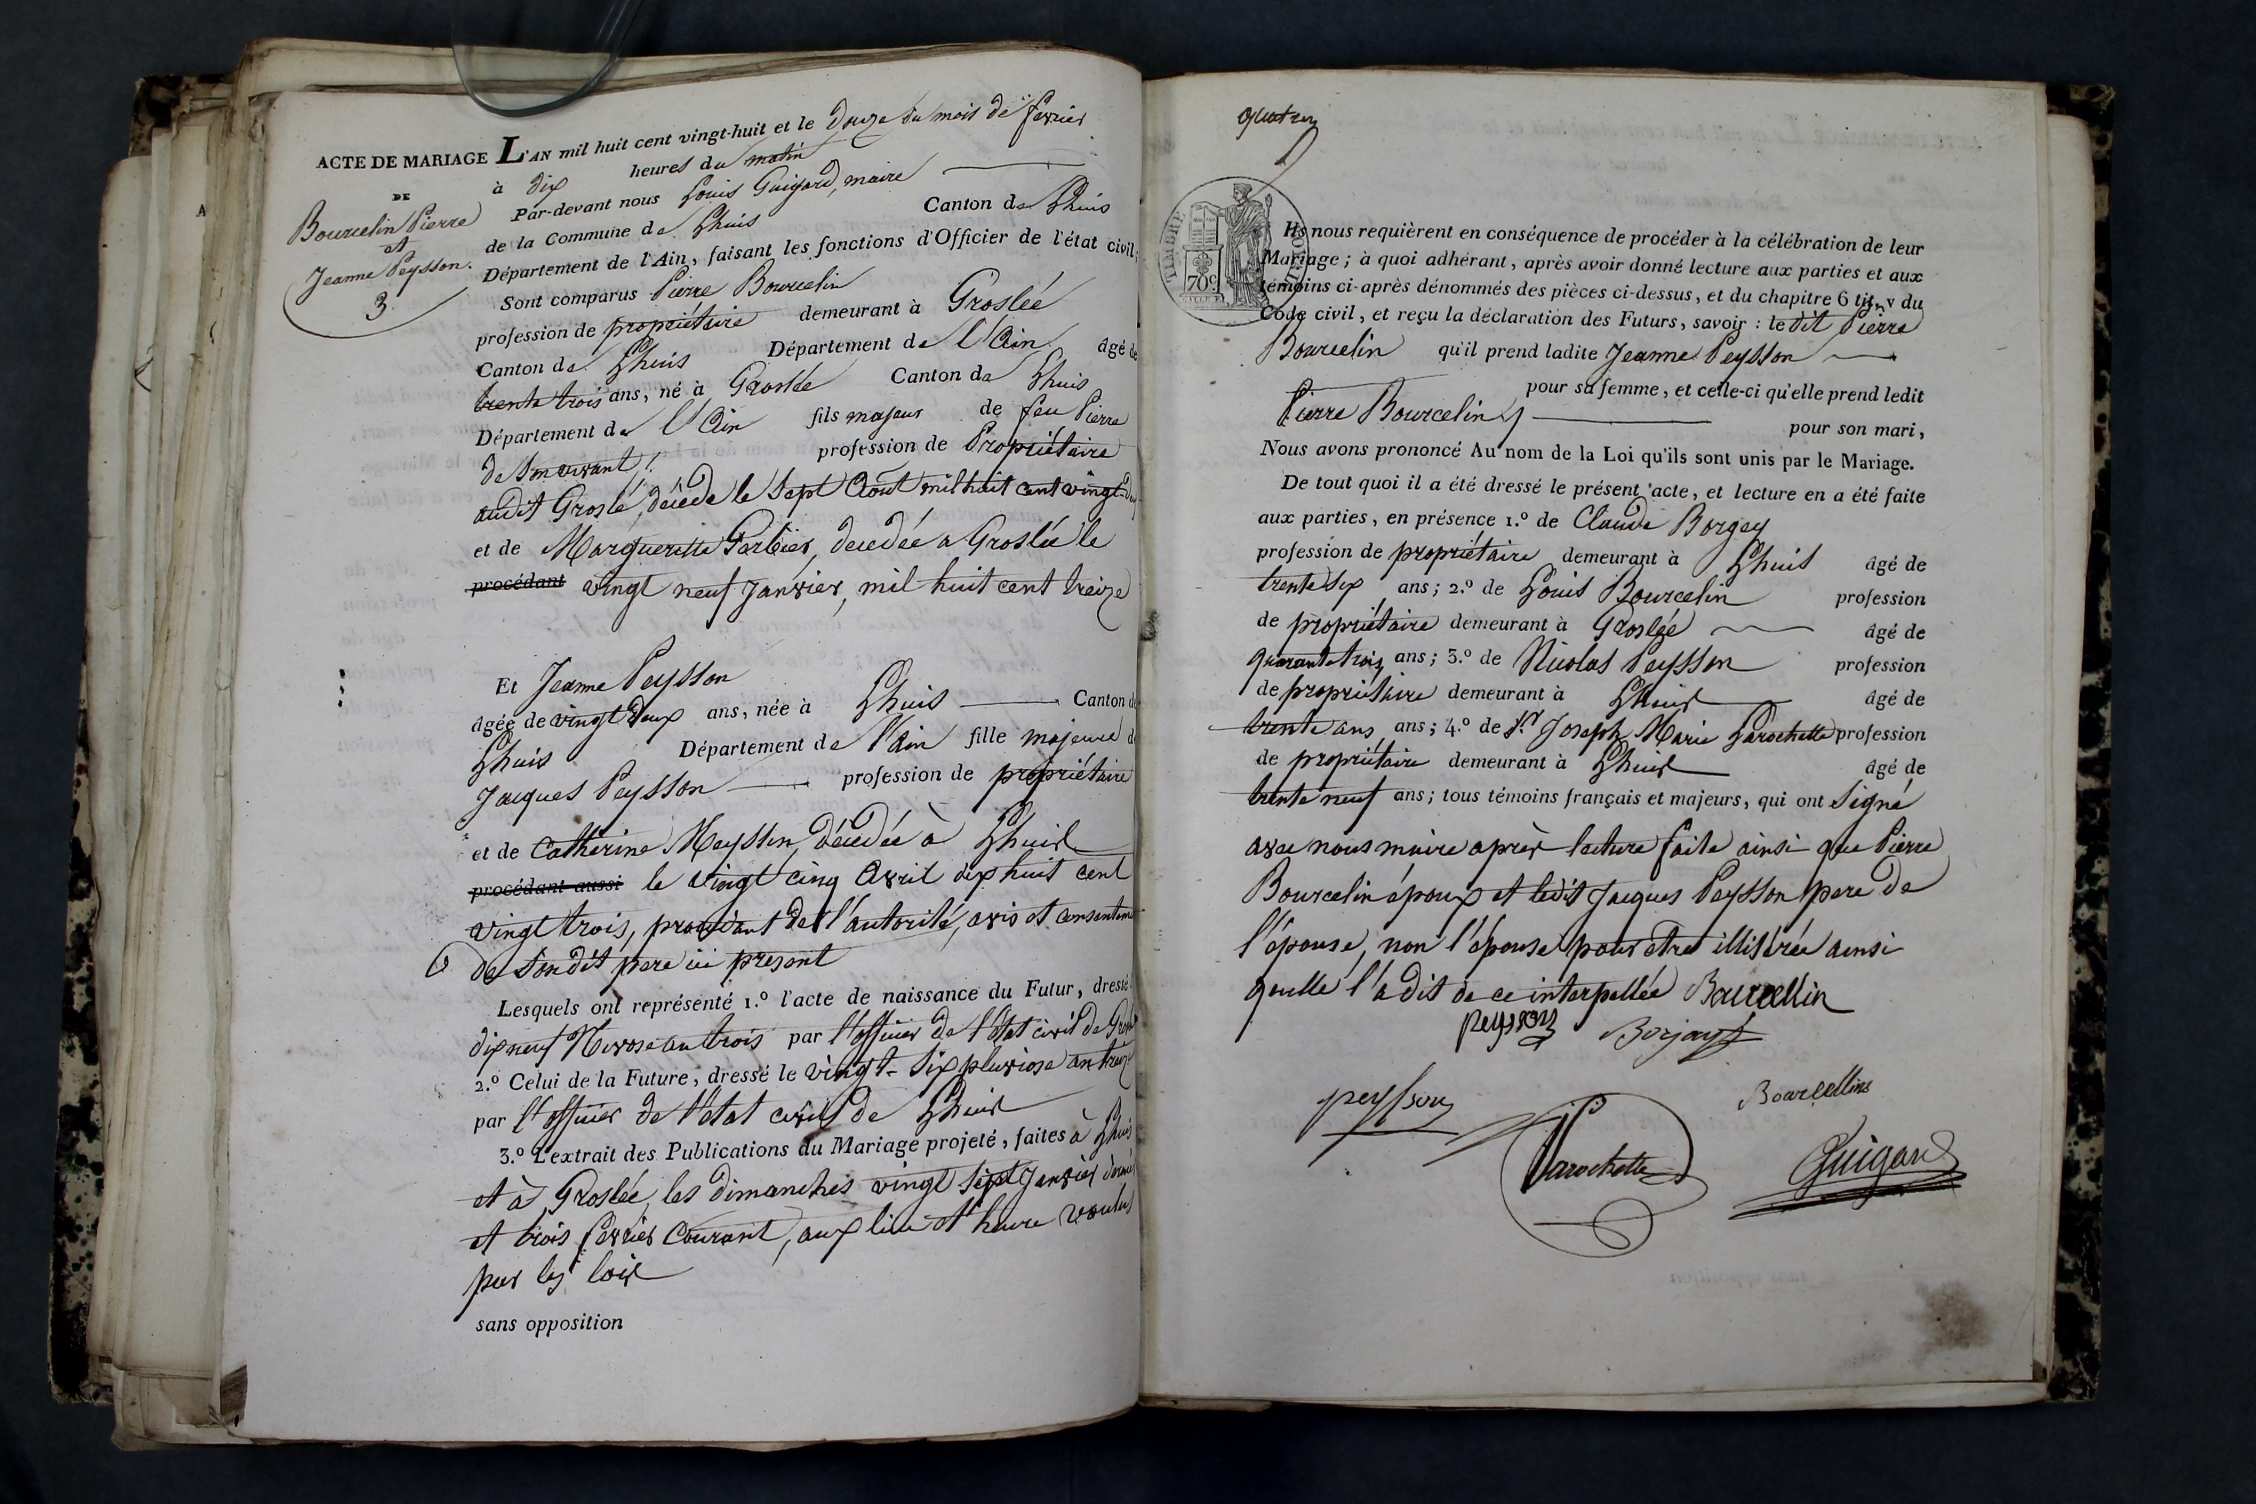 ACTE DE MARIAGE L'AN mil huit cent vingt-huit et le douze du mois de fevrier
DE
à dix heures du matin
Bourcelin Pierre
et
Jeanne Peysson.
3.
Par-devant nous Louis Guigard, maire
de la Commune de Lhuis Canton de Lhuis
Département de l'Ain, faisant les fonctions d'Officier de l'état civil;
Sont comparus Pierre Bourcelin
profession de propriétaire demeurant à Groslée
Canton de Lhuis Département de l'Ain âgé de
trente trois ans, né à Groslée Canton de Lhuis
Département de l'Ain fils majeur de feu Pierre
de son vivant profession de Propriétaire
audit Groslé, décédé le sept Août mil huit cent vingt
et de Margueritte Gerbier, decedée a Groslée le
procédant vingt neuf janvier, mil huit cent treize
Et Jeanne Peysson
âgée de vingt deux ans, née à Lhuis Canton de
Lhuis Département de l'Ain fille majeure de
Jacques Peysson profession de propriétaire
et de Catherine Meysson, décedée à Lhuis
procédant aussi le vingt cinq Avril dix huit cent
vingt trois, procédant de l'autorité, avis et consentem
de sondit pere ici present
Lesquels ont représenté 1.º l'acte de naissance du Futur, dressé
dix neuf Nivose an trois par l'officier de l'état civil de
2.º Celui de la Future, dressé le vingt-six pluviose an treize
par l'officier de l'état civil de Lhuis
3.º L'extrait des Publications du Mariage projeté, faites à Lhuis
et à Groslée, les dimanches vingt sept janvier dernier
et trois fevrier courant, aux lieu et heure voulus
par les lois
sans opposition
quatre
TIMBRE
70c
Ils nous requièrent en conséquence de procéder à la célébration de leur
Mariage; à quoi adhérant, après avoir donné lecture aux parties et aux
témoins ci-après dénommés des pièces ci-dessus, et du chapitre 6 tit. v du
Code civil, et reçu la déclaration des Futurs, savoir: le dit Pierre
Bourcelin qu'il prend ladite Jeanne Peysson
pour sa femme, et celle-ci qu'elle prend ledit
Pierre Bourcelin pour son mari,
Nous avons prononcé Au nom de la Loi qu'ils sont unis par le Mariage.
De tout quoi il a été dressé le présent acte, et lecture en a été faite
aux parties, en présence 1.º de Claude Borgey
profession de propriétaire demeurant à Lhuis âgé de
trente six ans; 2.º de Louis Bourcelin profession
de propriétaire demeurant à Groslée âgé de
quarante trois ans; 3.º de Nicolas Peysson profession
de propriétaire demeurant à Lhuis âgé de
trente ans ans; 4.º de Sr. Joseph Marie Larochette profession
de propriétaire demeurant à Lhuis âgé de
trente neuf ans; tous témoins français et majeurs, qui ont signé
avec nous maire après lecture faite ainsi que Pierre
Bourcelin époux et ledit Jacques Peysson pere de
l'épouse, non l'épouse pour etre illitérée ainsi
quelle l'a dit de ce interpellée Bourcellin
peysson Borjay
peysson Bourcellin
Larochette Guigard